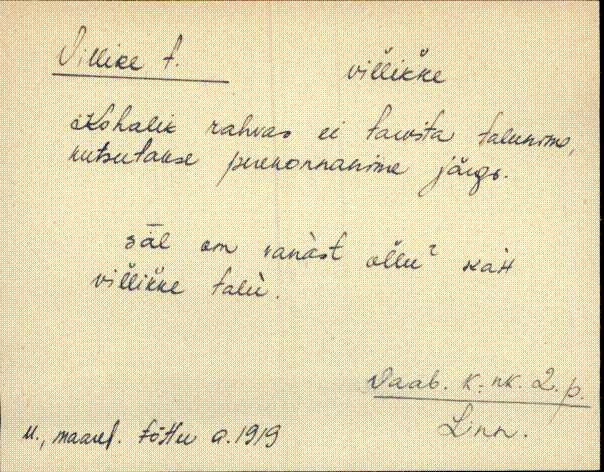 Villike t.
villikke
Kohalik rahvas ei tarvita talunime,
kutsutakse perekonnanime järgi.
säl om vanast ollu² katś
villikke talu.
Vaab. k. nk. 2. p.
Linn.
U., maaref. tõttu a. 1919